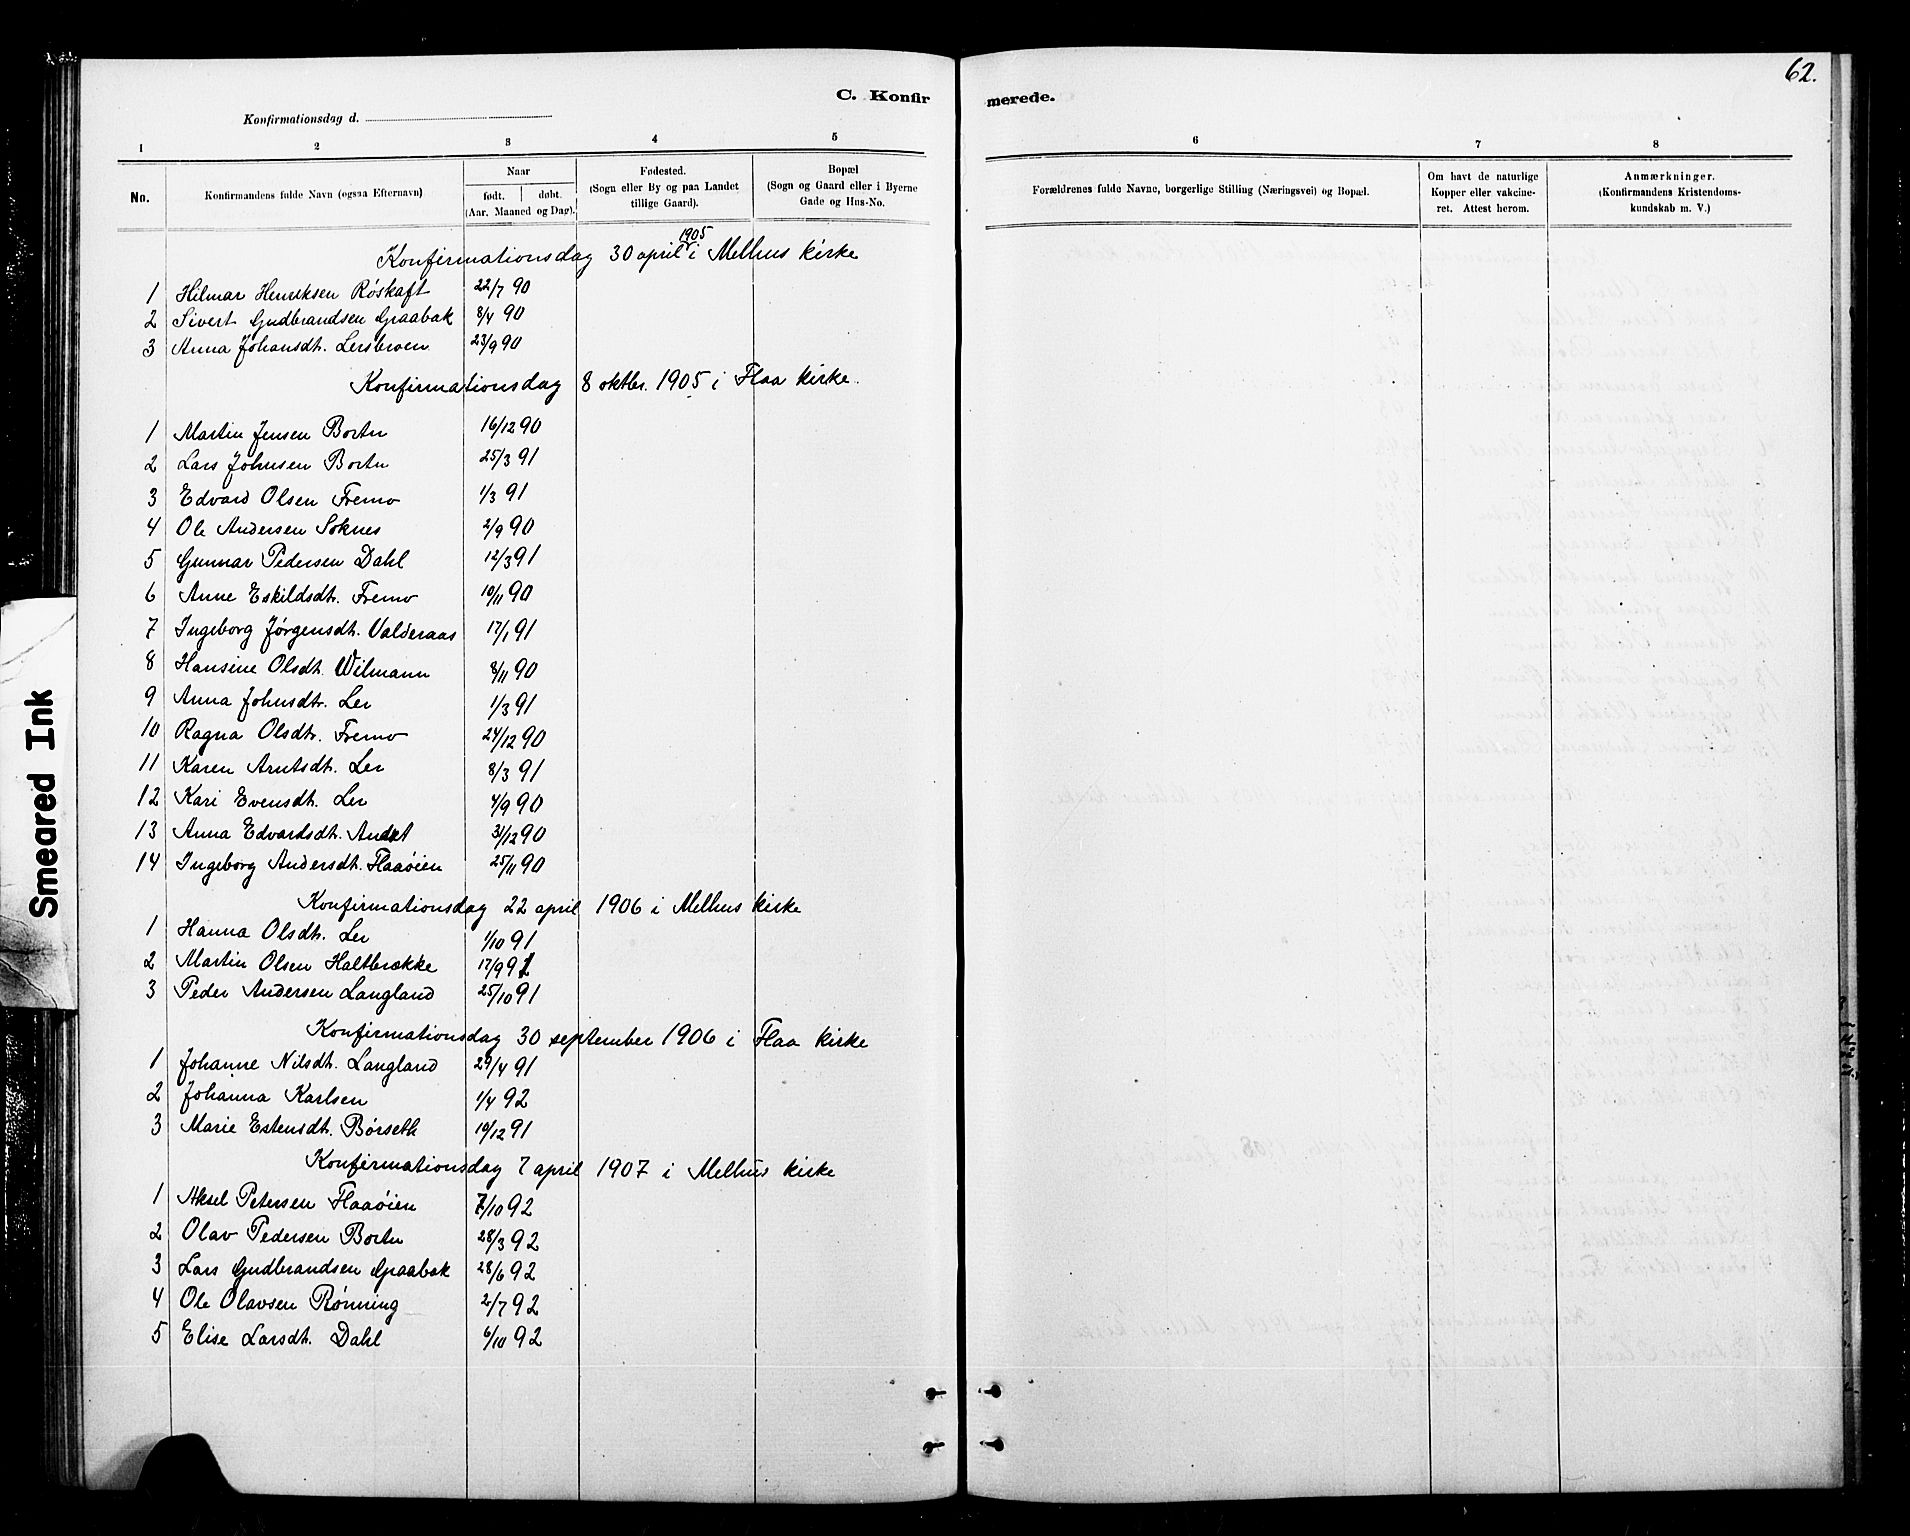 62.
C. Konfir merede.
Konfirmationsdag d.
1 2 3 4 5 6 7 8
No.
Konfirmandens fulde Navn (ogsaa Efternavn)
Naar
født. døbt.
(Aar. Maaned og Dag).
Fødested.
(Sogn eller By og paa Landet
tillige Gaard).
Bopæl
(Sogn og Gaard eller i Byerne
Gade og Hus-No.
Forældrenes fulde Navne, borgerlige Stilling (Næringsvei) og Bopæl.
Om havt de naturlige
Kopper eller vakcine-
ret. Attest herom.
Anmærkninger.
(Konfirmandens Kristendoms-
kundskab m. V.)
Konfirmationsdag 30 april 1905 i Melhus kirke
1 Hilmar Henriksen Røskaft 22/7 90
2 Sivert Gudbrandsen Graabak 8/4 90
3 Anna Johansdt. Lersbroen 23/9 90
Konfirmationsdag 8 oktbr. 1905 i Flaa kirke.
1 Martin Jensen Borten 16/12 90
2 Lars Johnsen Borten 25/3 91
3 Edvard Olsen Fremo 1/3 91
4 Ole Andersen Soknes 2/9 90
5 Gunnar Pedersen Dahl 12/3 91
6 Anne Eskildsdt. Fremo 10/11 90
7 Ingeborg Jørgensdt. Valderaas 17/1 91
8 Hansine Olsdt. Wilmann 8/11 90
9 Anna Johnsdt. Ler 1/3 91
10 Ragna Olsdt. Fremo 24/12 90
11 Karen Arntsdt. Ler 8/3 91
12 Kari Evensdt. Ler 4/9 90
13 Anna Edvardsdt. 31/12 90
14 Ingeborg Andersdt. Flaaøien 25/11 90
Konfirmationsdag 22 april 1906 i Melhus kirke
1 Hanna Olsdt. Ler 1/10 91
2 Martin Olsen Haltbrække 17/9 91
3 Peder Andersen Langland 25/10 91
Konfirmationsdag 30 september 1906 i Flaa kirke
1 Johanne Nilsdt. Langland 29/4 91
2 Johanna Karlsen 1/4 92
3 Marie Estensdt. Børseth 19/12 91
Konfirmationsdag 7 april 1907 i Melhus kirke
1 Aksel Petersen Flaaøien 7/10 92
2 Olav Pedersen Borten 28/3 92
3 Lars Gudbrandsen Graabak 28/6 92
4 Ole Olavsen Rønning 2/7 92
5 Elise Larsdt. Dahl 6/10 92
Smeared Ink